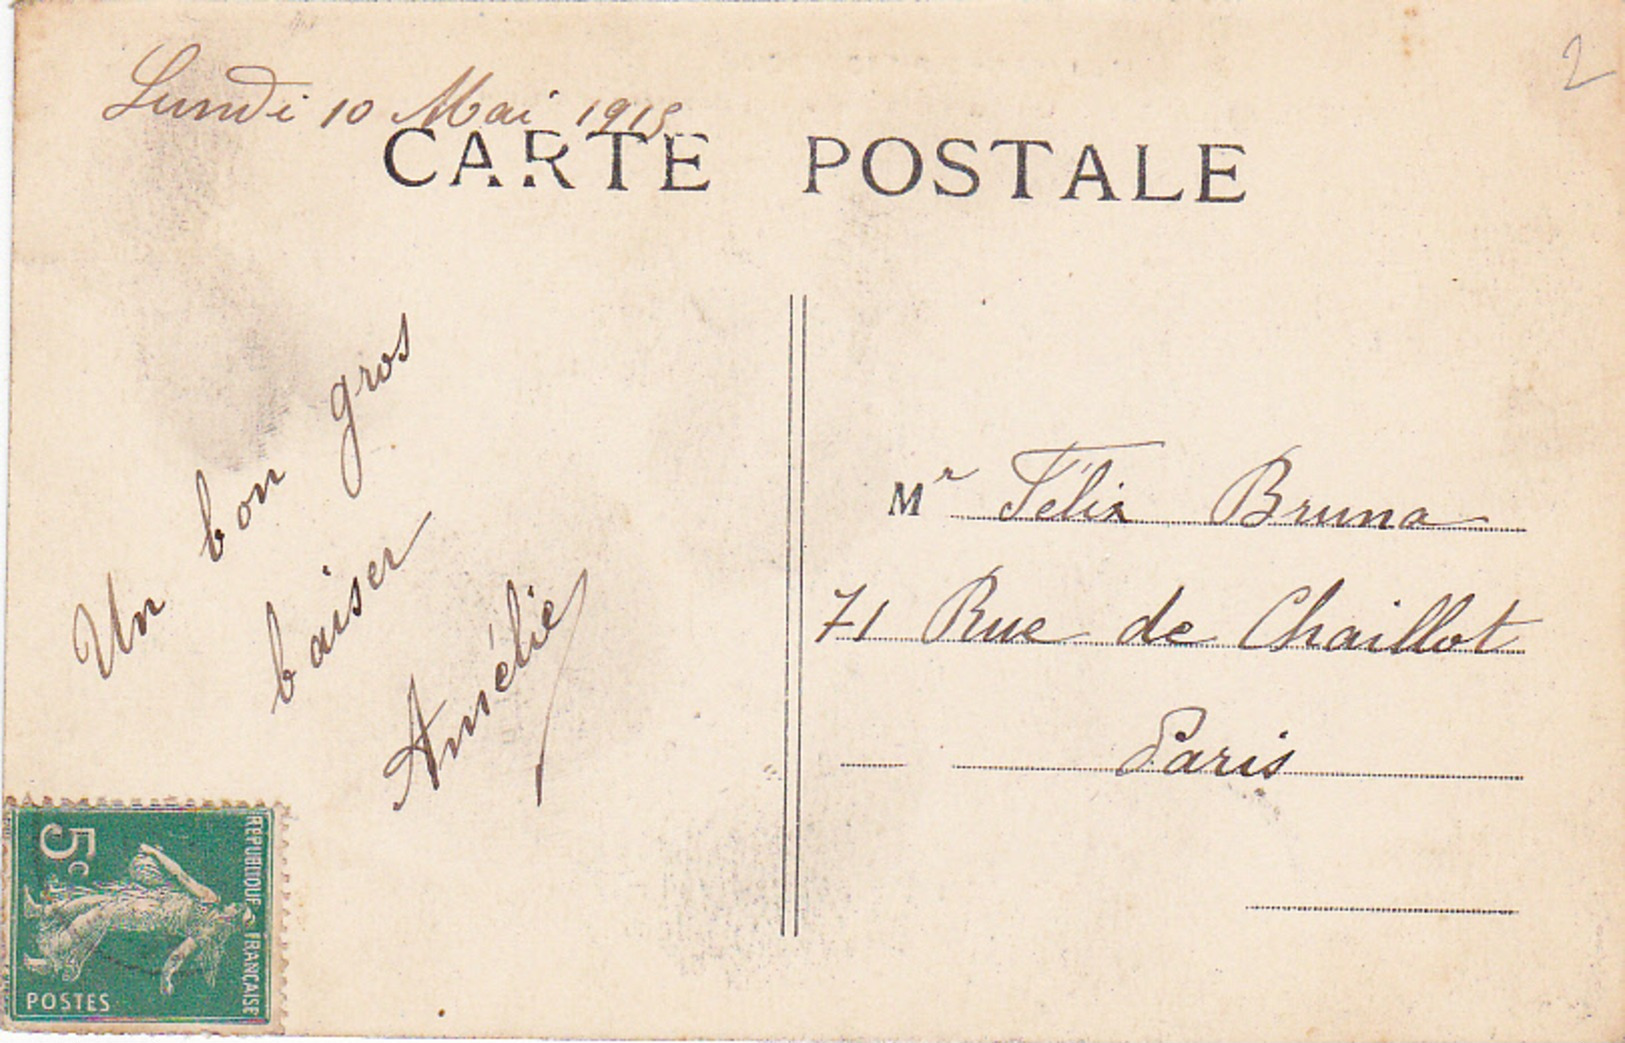 2
Lundi 10 Mai 1915
CARTE POSTALE
Un bon gros
baiser
Amélie
Mr Félix Bruna
71 Rue de Chaillot
Paris
5c
REPUBLIQUE FRANÇAISE
POSTES